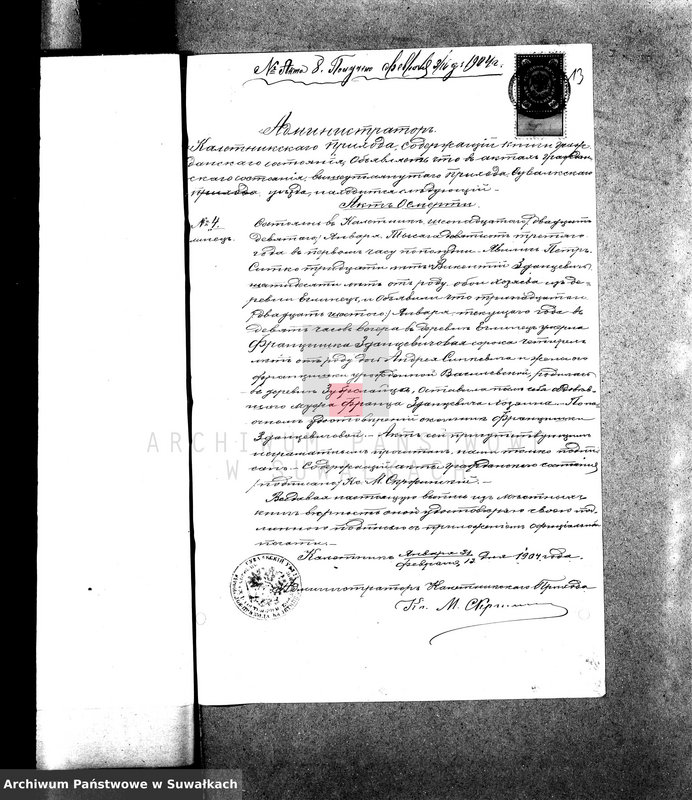 № Акта 8. Получено февраля 1904 г.
13
Администраторъ
Калетникскаго прихода, содержащій книги граж-
данскаго состоянія, объявляетъ что въ актахъ граждан-
скаго состоянія, вышеупомянутаго прихода, Сувалкскаго
прихода уѣзда, находится слѣдующій -
Актъ о смерти.
№ 4.
Состоялось въ Калетникъ шестнадцатаго /двадцать
девятаго/ Января, Тысяча девятьсотъ третьяго
года въ первомъ часу пополудни. Явились Петръ
Ситко тридцати лѣтъ и Викентій Зданцевичъ
пятидесяти лѣтъ отъ роду, оба хозяева изъ де-
ревни и объявили что тринадцатаго
/двадцать шестого/ Января, текущаго года въ
девять часовъ вечера въ деревнѣ умерла
Францишка Зданцевичова сорока четырехъ
лѣтъ отъ роду дочь Андрея и жены его
Францишки урожденной Василевской, родилась
въ деревнѣ оставила послѣ себя овдовѣв-
шаго мужа Франца Зданцевича хозяина. По на-
стоящемъ удостовѣреніи о кончинѣ Францишки
Зданцевичовой. Актъ сей присутствующимъ
неграмотнымъ прочитанъ, нами только подпи-
санъ. Содержащій акты гражданскаго состоянія
/подписано/ Кс. М.
Выдавая настоящую выпись изъ мѣстныхъ
книгъ вѣрность оной удостовѣряю своею под-
линною подписью съ приложеніемъ официальной
печати.
Калетникъ Января 31 / Февраля 13 дня 1904 года.
Администраторъ Калетникскаго Прихода
Кс. М.
ARCHIWUM PAŃSTWOWE
W SUWAŁKACH
Archiwum Państwowe w Suwałkach